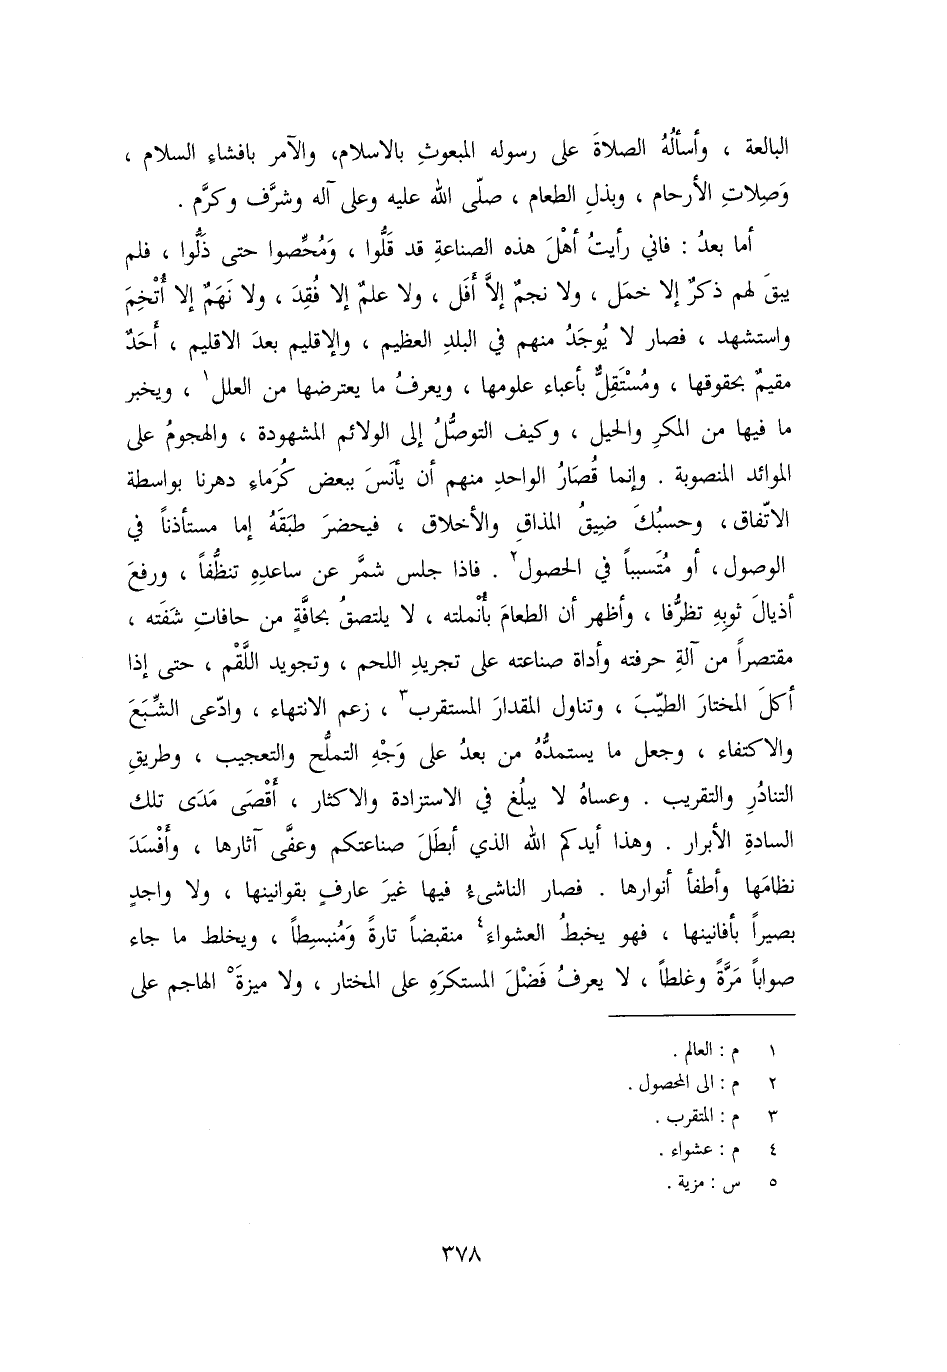 البالغة ، وأسألُهُ الصلاةَ على رسوله المبعوثِ بالاسلام، والآمر بافشاءِ السلام ،
وَصِلاتِ الأرحام ، وبذلِ الطعام ، صلّى الله عليه وعلى آله وشرَّف وكرَّم .
أما بعدُ : فاني رأيتُ أهْلَ هذه الصناعةِ قد قَلُّوا ، وَمُحِّصوا حتى ذَلُّوا ، فلم
يبقَ لهم ذكرٌ إلا خمَل ، ولا نجمٌ إلاَّ أَفَل ، ولا علمٌ إلا فُقِدَ ، ولا نَهَمٌ إلا أُتْخِمَ
واستشهد ، فصار لا يُوجَدُ منهم في البلدِ العظيم ، والإقليم بعدَ الاقليم ، أَحَدٌ
مقيمٌ بحقوقها ، ومُسْتَقِلٌّ بأعباء علومها ، ويعرفُ ما يعترضها من العلل١ ، ويخبر
ما فيها من المكرِ والحيل ، وكيف التوصُّلُ إلى الولائم المشهودة ، والهجومُ على
الموائد المنصوبة . وإنما قُصَارُ الواحدِ منهم أن يأنَسَ ببعض كُرَماءِ دهرنا بواسطة
الاتّفاق، وحسبُكَ ضِيقُ المذاقِ والأخلاق ، فيحضرَ طبَقَهُ إما مستأذناً في
الوصول، أو مُتَسبباً في الحصول٢ . فاذا جلس شمَّر عن ساعدِهِ تنظُّفاً ، ورفعَ
أذيالَ ثوبِهِ تظرُّفا ، وأظهر أن الطعامَ بأنْملته ، لا يلتصقُ بحافَّةٍ من حافاتِ شَفَته ،
مقتصراً من آلةِ حرفته وأداة صناعته على تجريدِ اللحم ، وتجويد اللَّقْم ، حتى إذا
أكلَ المختارَ الطيّبَ ، وتناول المقدارَ المستقرب٣ ، زعم الانتهاء ، وادّعى الشِّبَعَ
والاكتفاء ، وجعل ما يستمدُّهُ من بعدُ على وَجْهِ التملُّح والتعجيب ، وطريقِ
التنادُرِ والتقريب . وعساهُ لا يبلُغ في الاستزادة والاكثار ، أَقْصَى مَدَى تلك
السادةِ الأبرار . وهذا أيدكم الله الذي أبطَلَ صناعتكم وعفَّى آثارها ، وأَفْسَدَ
نظامَها وأطفأ أنوارها . فصار الناشىء فيها غيرَ عارفٍ بقوانينها ، ولا واجدٍ
بصيراً بأفانينها ، فهو يخبطُ العشواء٤ منقبضاً تارةً وَمُنبسِطاً ، ويخلط ما جاء
صواباً مَرَّةً وغلطاً ، لا يعرفُ فَضْلَ المستكرَهِ على المختار ، ولا ميزةَ٥ الهاجم على
١ م : العالم .
٢ م : الى المحصول .
٣ م : المتقرب .
٤ م : عشواء .
٥ س : مزية .
٣٧٨